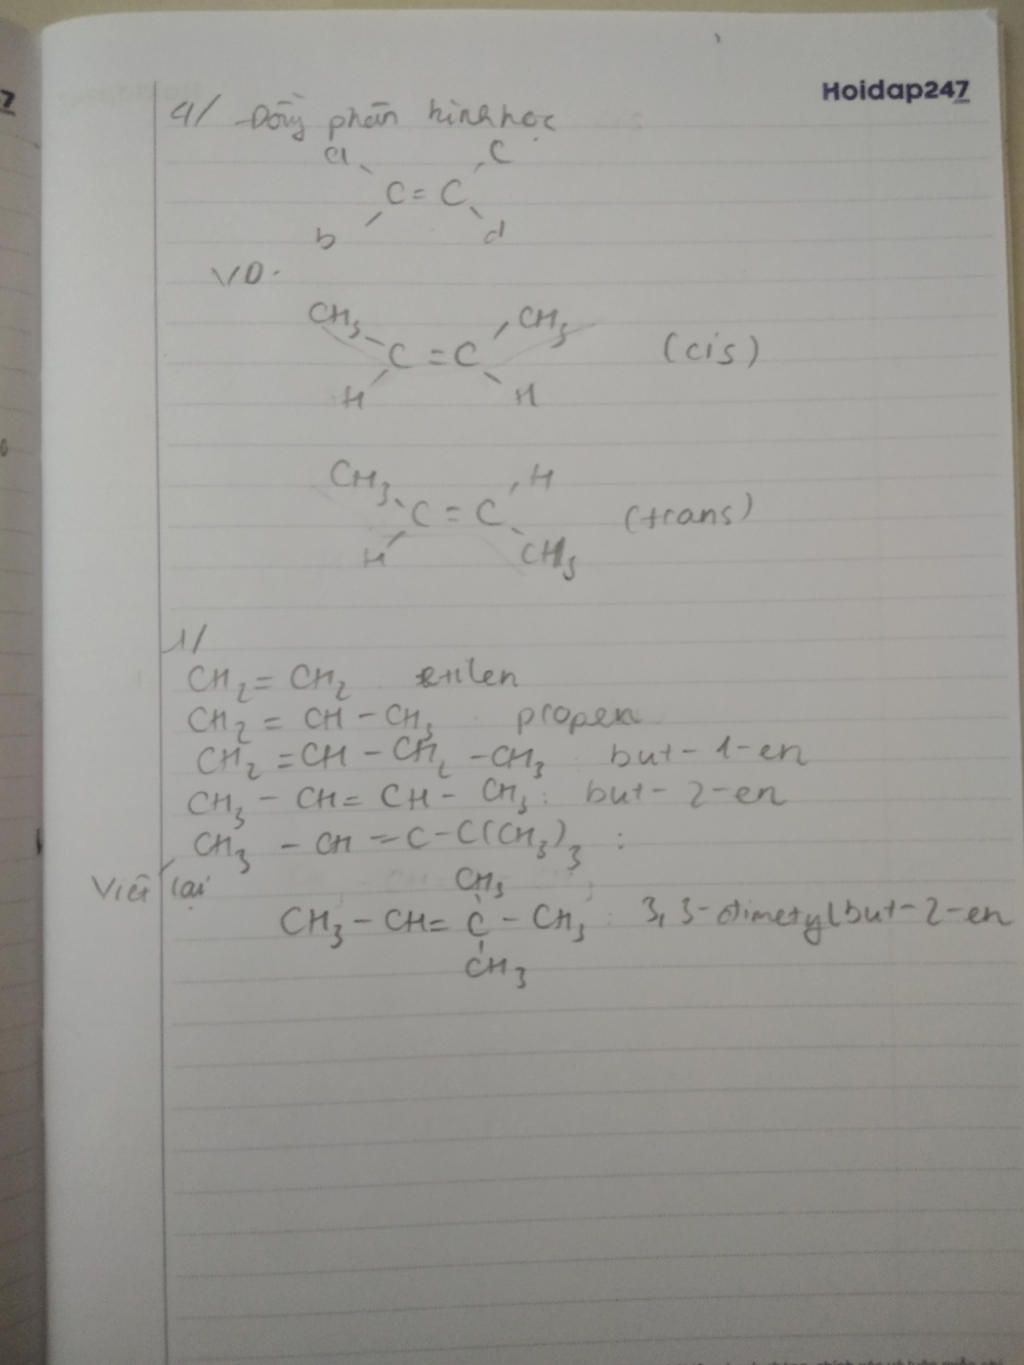 7
Hoidap247
4/ Đồng phân hình học
a C
C = C
b d
VD.
CH3 CH3
C = C (cis)
H H
CH3 H
C = C (trans)
H CH3
1/
CH2 = CH2 etilen
CH2 = CH - CH3 propen
CH2 = CH - CH2 - CH3 : but-1-en
CH3 - CH = CH - CH3 : but-2-en
CH3 - CH = C - C(CH3)3 :
Viết lại
CH3
CH3 - CH = C - CH3 : 3,3-đimetylbut-2-en
CH3